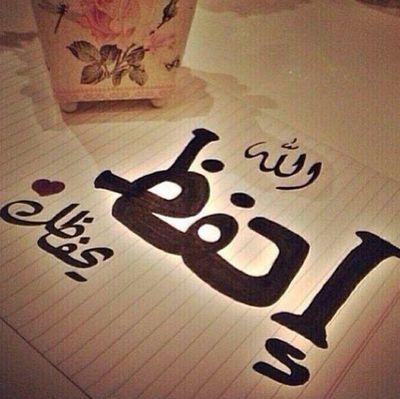 إحفظ
الله
يحفظك